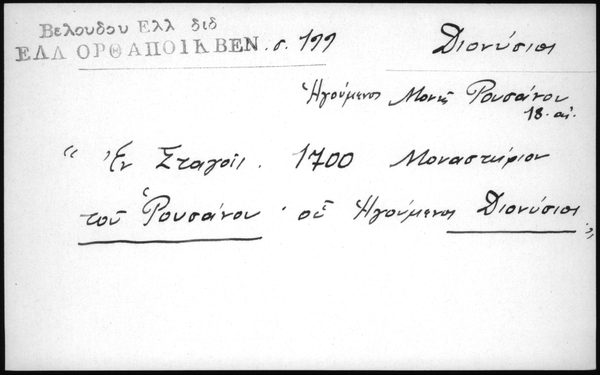 Βελουδου Ελλ διδ
ΕΛΛ ΟΡΘΑΠΟΙΚΒΕΝ. σ. 199
Διονύσιος
Ἡγούμενος Μονῆς Ρουσάνου
18. αἰ.
“ Ἐν Σταγοῖς. 1700 Μοναστήριον
τοῦ Ῥουσάνου · οὗ Ἡγούμενος Διονύσιος „